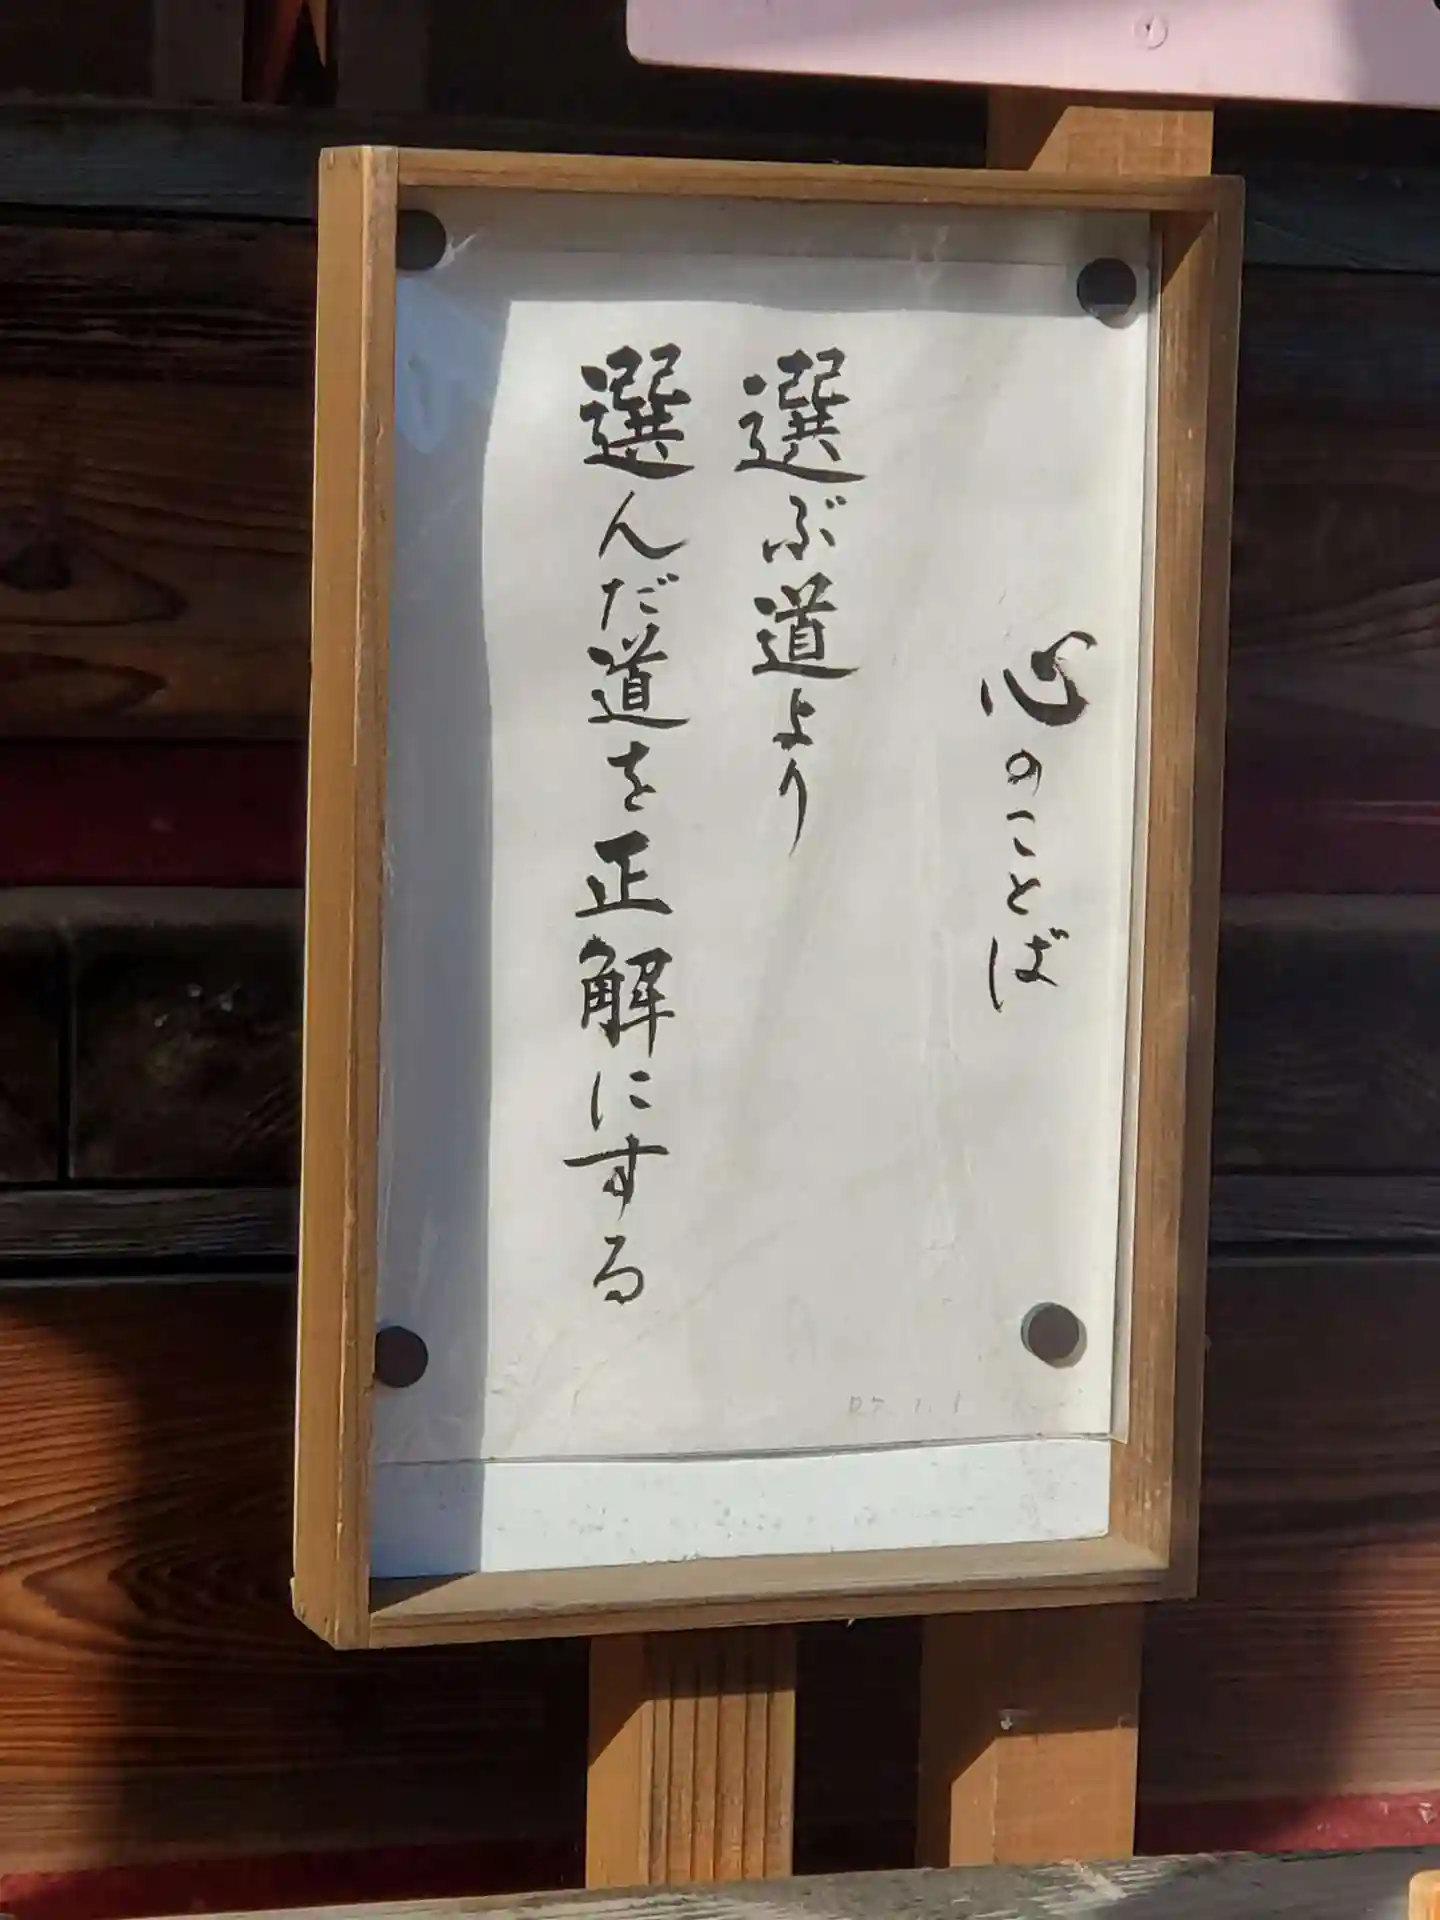 心のことば
選ぶ道より
選んだ道を正解にする
R7.1.1